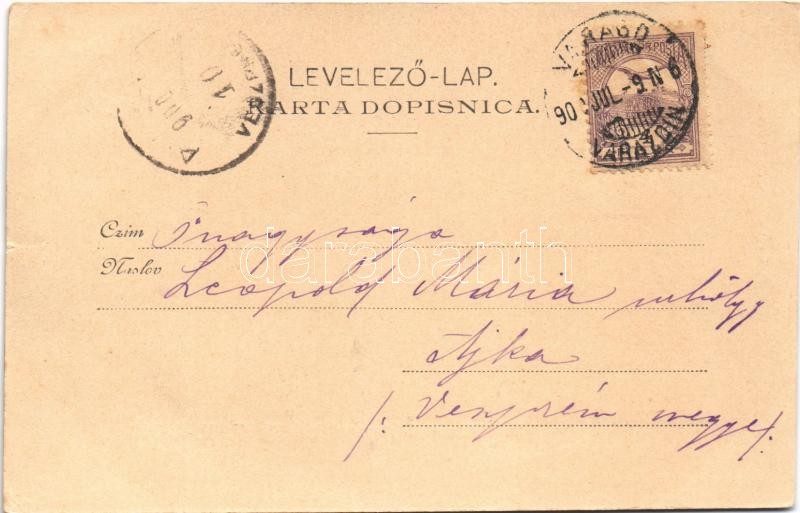 LEVELEZŐ-LAP.
KARTA DOPISNICA.
VARASD
90 JUL-9 N 6
VARAZDIN
10
900
VESZPRÉM
Czim Őnagysága
Naslov Leopold Mária
Ajka
/: Veszprém megye/.
darabanth